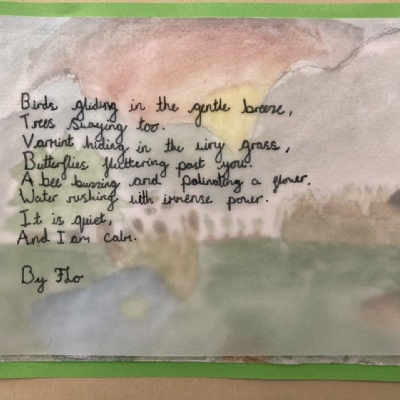 Birds gliding in the gentle breeze,
Trees swaying too.
Varmint hiding in the wiry grass,
Butterflies fluttering past you.
A bee buzzing and Polinating a flower.
Water rushing with immense power.
It is quiet,
And I am calm.
By Flo